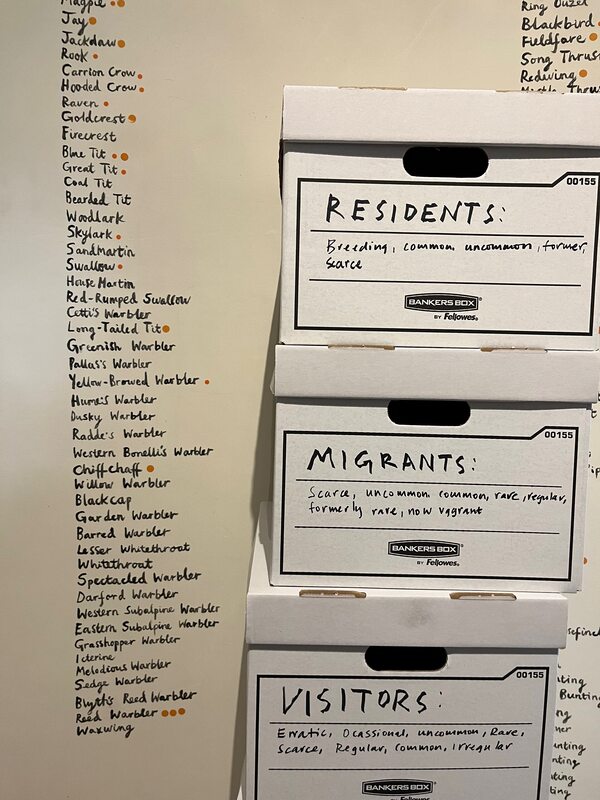 Magpie
Jay
Jackdaw
Rook
Carrion Crow
Hooded Crow
Raven
Goldcrest
Firecrest
Blue Tit
Great Tit
Coal Tit
Bearded Tit
Woodlark
Skylark
Sandmartin
Swallow
House Martin
Red-Rumped Swallow
Cetti's Warbler
Long-Tailed Tit
Greenish Warbler
Pallas's Warbler
Yellow-Browed Warbler
Hume's Warbler
Dusky Warbler
Radde's Warbler
Western Bonelli's Warbler
Chiffchaff
Willow Warbler
Blackcap
Garden Warbler
Barred Warbler
Lesser Whitethroat
Whitethroat
Spectacled Warbler
Darford Warbler
Western Subalpine Warbler
Eastern Subalpine Warbler
Grasshopper Warbler
Icterine
Melodious Warbler
Sedge Warbler
Blyth's Reed Warbler
Reed Warbler
Waxwing
Ring Ouzel
Blackbird
Fieldfare
Song Thrus
Redwing
Mistle Thru
00155
RESIDENTS:
Breeding, common, uncommon, former,
Scarce
BANKERS BOX
BY Fellowes
00155
MIGRANTS:
Scarce, uncommon, common, rare, regular,
formerly rare, now vagrant
BANKERS BOX
BY Fellowes
00155
VISITORS:
Erratic, Ocassional, uncommon, Rare,
Scarce, Regular, common, irregular
BANKERS BOX
Bunting